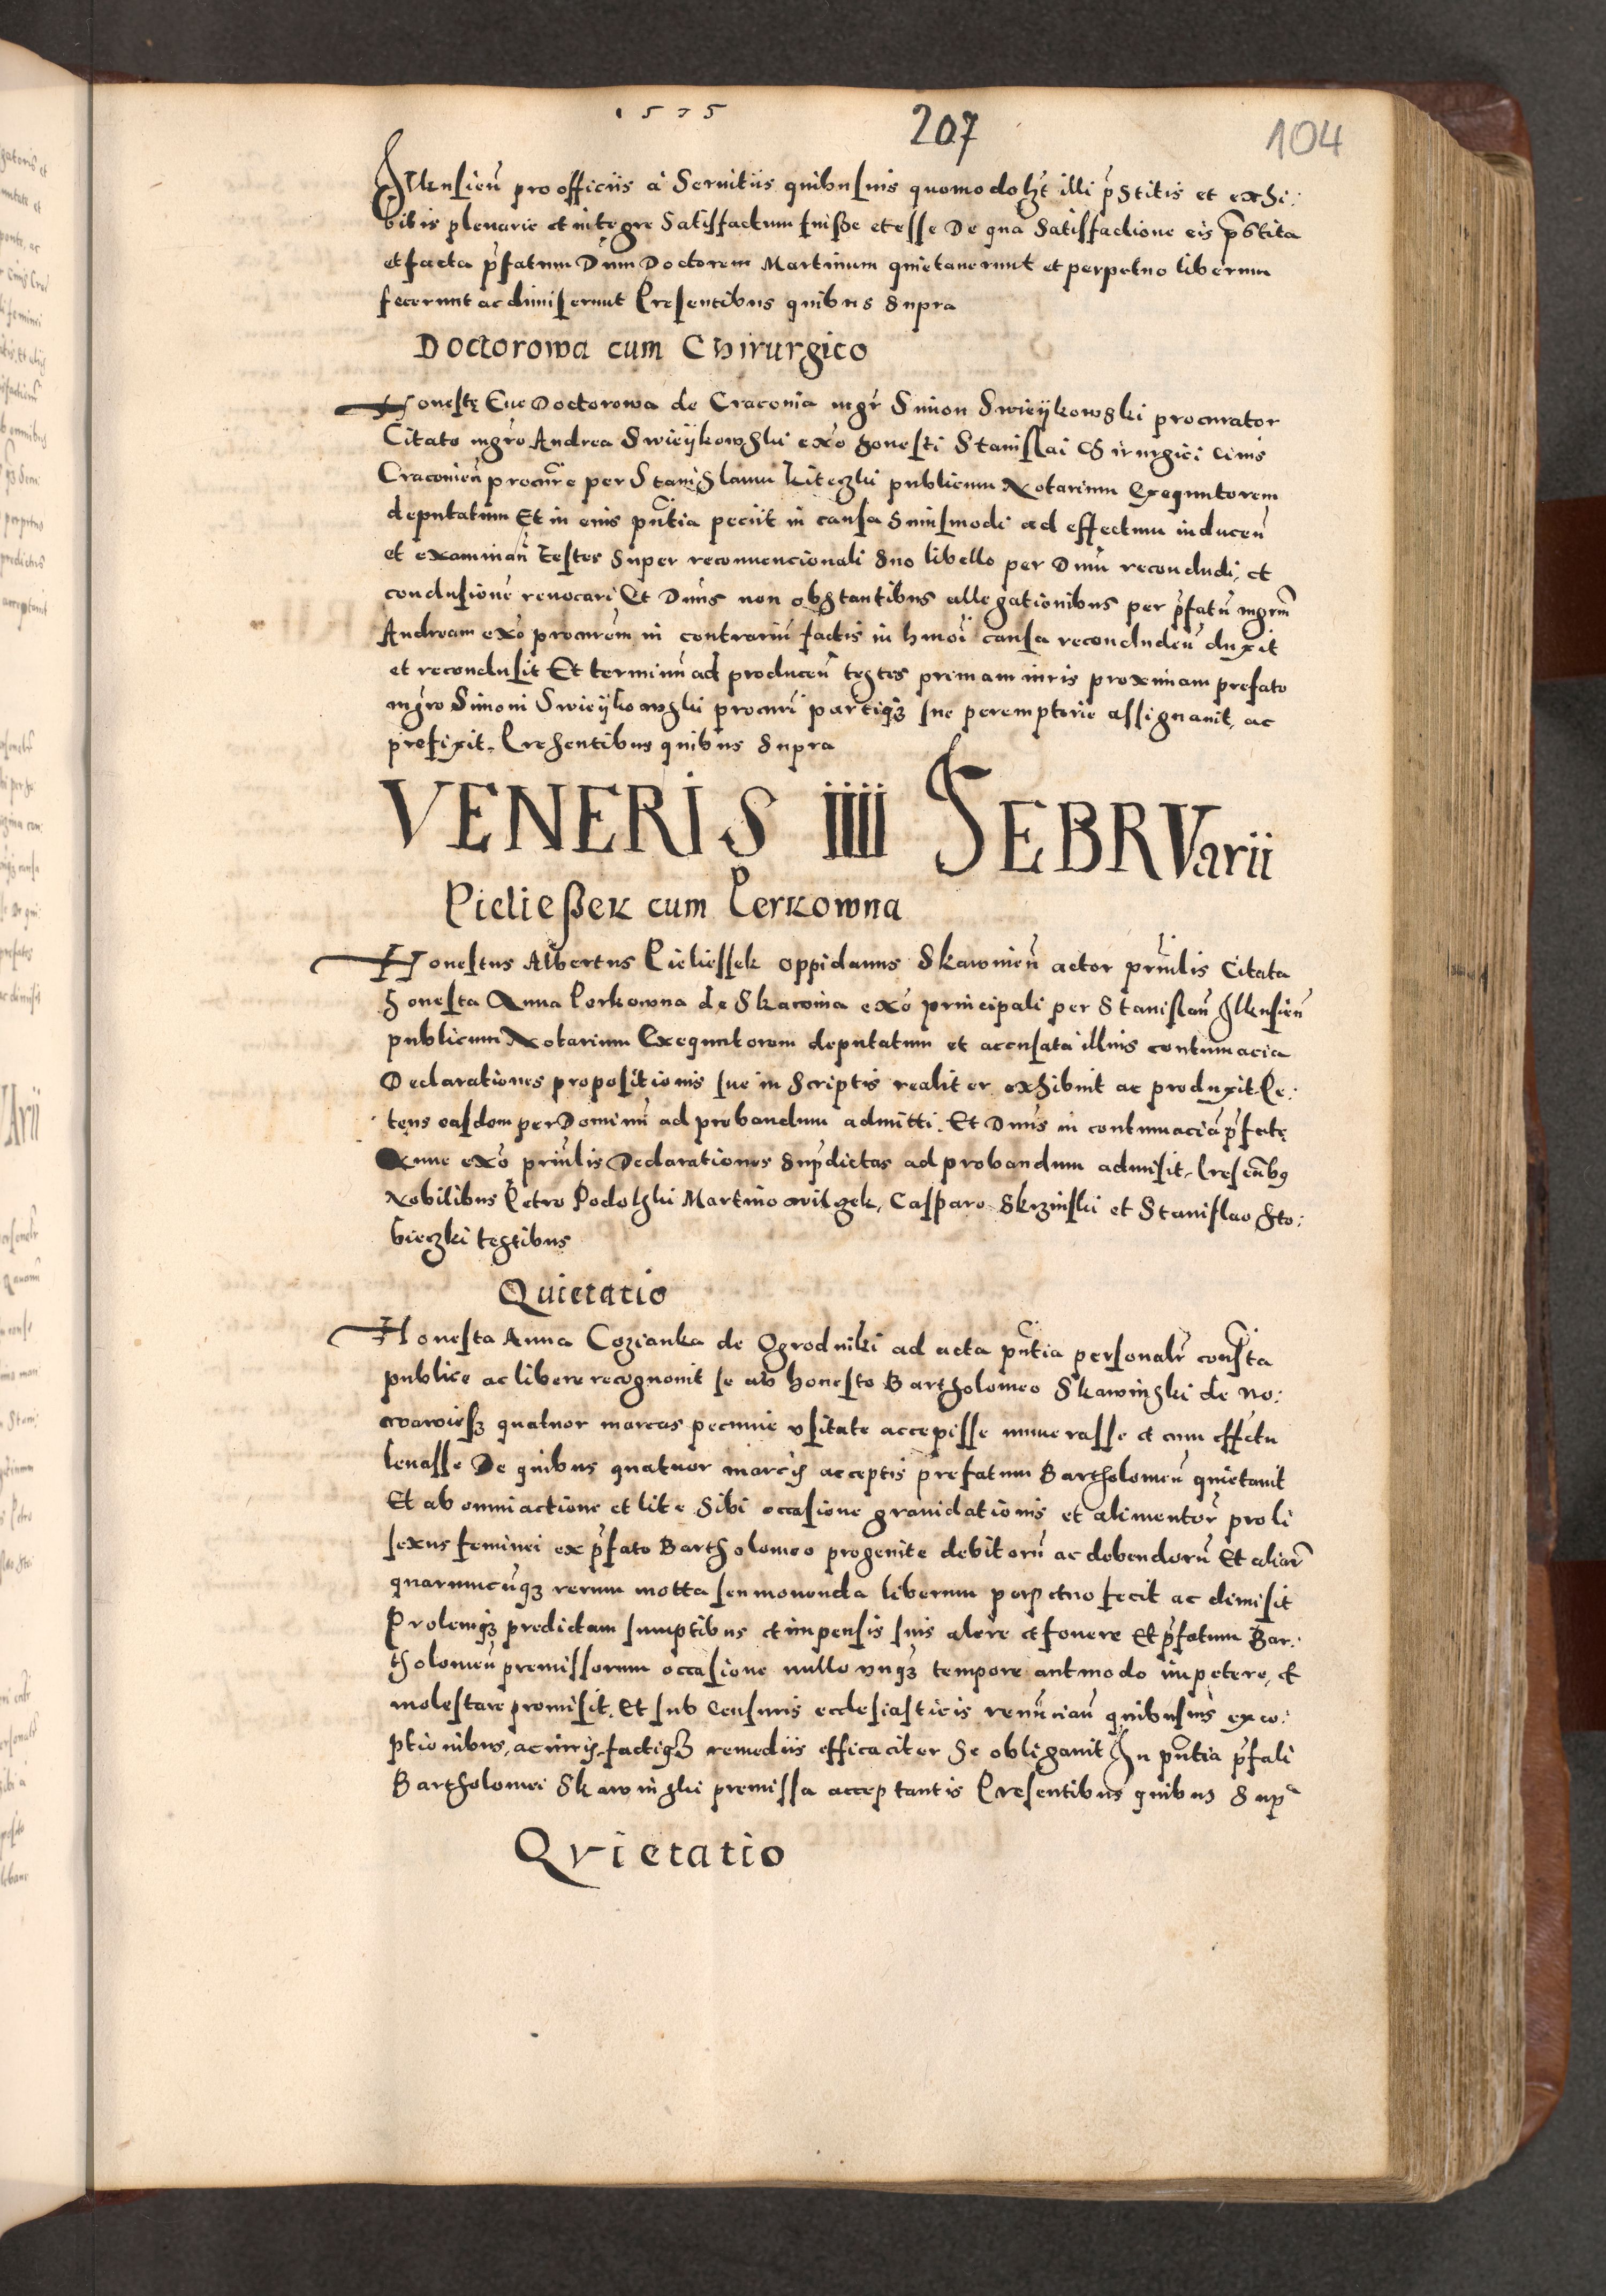 1575 207 104
Ilkusien̄ pro officiis a Seruitiis quibusuis quomodolȝt illi p̄stitis et exhi:
bitis plenarie et integre Satisfactum fuisse et esse De qua Satisfactione eis p̄stita
et facta p̄fatum Dnm Doctorem Martinum quietauerunt et perpetuo liberum
fecerunt ac dimiserunt Presentibus quibus supra
Doctorowa cum Chirurgico
Honestę Eue Doctorowa de Cracouia mgr̄ Simon Swieÿkowski procurator
Citato mgro Andrea Swieÿkowski exō honesti Stanislai Chirurgici Ciuis
Cracouien̄ procur̄e per Stanislaum Kiteczki publicum Notarium Exequutorem
deputatum Et in eius pn̄tia peciit in causa huiusmodi ad effectum inducen̄
et examinan̄ testes super reconuencionali suo libello per Dnm̄ recondudi, et
conclusione reuocari Et Dnus non obstantibus allegationibus per p̄fatū mgrm̄
Andream exō procurem̄ in contrariū factis in hmoī causa recondudeū duxit
et reconclusit Et terminū ad producen̄ testes primam iuris proximam prefato
mgro Simoni Swieÿkowski procur̄i partiqȝ sue peremptorie assignauit, ac
prefixit. Presentibus quibus supra
VENERIS IIII FEBRVarii
Pieließek cum Perkowna
Honestus Albertus Pieliessek oppidanus Skawinen̄ actor prn̄lis Citata
honesta Anna Perkowna de Skawina exō principali per Stanislaū Ilkusien̄
publicum Notarium Exequutorem deputatum et accusata illius contumacia
Declarationes propositionis sue in Scriptis realiter exhibuit ac produxit Pe:
tens easdem per Dominū ad probandum admitti. Et Dnus in contumaciā p̄fatę
Anne exō prn̄lis Declarationes sup̄dictas ad probandum admisit. Presen̄bȝ
Nobilibus Petro Podolski Martino wilgek, Casparo Skrzinski et Stanislao Sto:
bieczki testibus
Quietatio
Honesta Anna Cozianka de Ogrodniki ad acta pn̄tia personalr̄ constˉta
publice ac libere recognouit se ab honesto Bartholomeo Skawinski de No:
wawiesȝ quatuor marcas pecunie vsitate accepisse numerasse et cum effectu
leuasse De quibus quatuor marcis acceptis prefatum Bartholomeū quietauit
Et ab omni actione et lite sibi occasione grauidationis et alimentor̄ proli
sexus feminei ex p̄fato Bartholomeo progenite debitorū ac debendorū Et aliar̄
quarumcūqȝ rerum motta seu mouenda liberum perpetuo fecit ac dimisit
Prolemqȝ predictam sumptibus et impensis suis alere et fouere Et p̄fatum Bar:
tholomeū premissorum occasione nullo vnqȝ tempore aut modo impetere, et
molestare promisit. Et sub Censuris ecclesiasticis renūnciaū quibusuis exce:
ptionibus, ac iuris factiqȝ remediis efficaciter se obligauit In pn̄tia p̄fati
Bartholomei Skawinski premissa acceptantis Presentibus quibus supª
Qvietatio